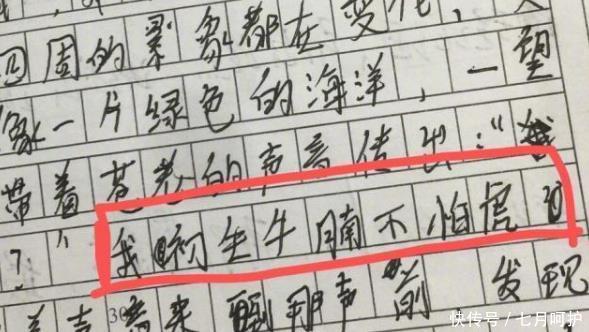 四周的景象都在变化，
像一片绿色的海洋，一望
带着苍老的声音传出：“我
？”我初生牛腩不怕虎的
着声 来到那声前 发现
快传号/七月呵护